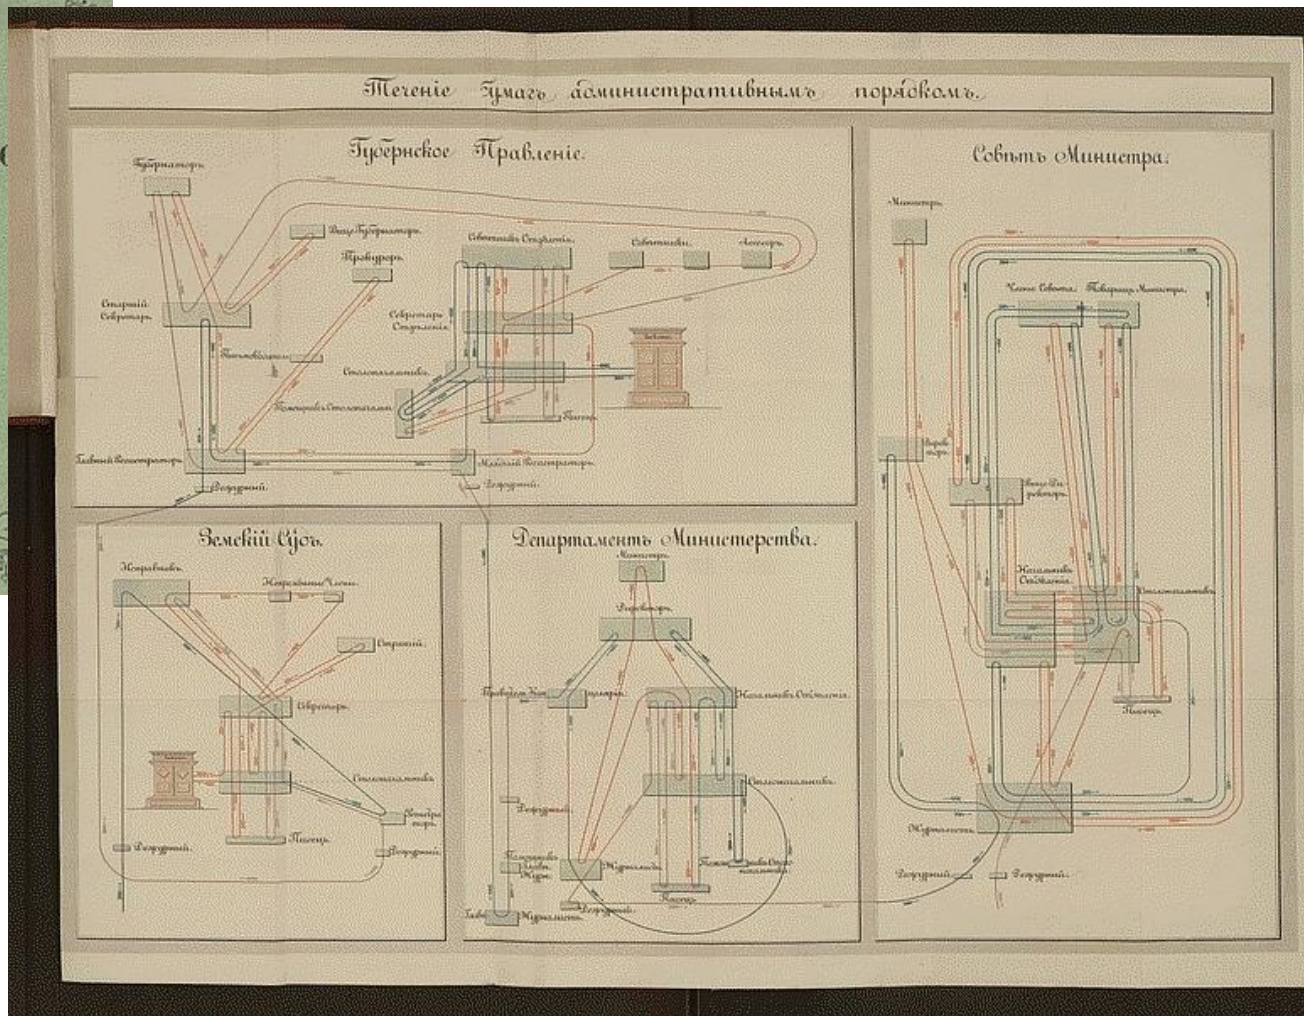 Теченіе бумагъ административнымъ порядкомъ.
Губернское Правленіе.
Губернаторъ.
Вице-Губернаторъ.
Прокуроръ.
Совѣтникъ Отдѣленія.
Совѣтники.
Ассесоръ.
Старшій
Секретарь.
Секретарь
Отдѣленія
Столоначальникъ.
Помощникъ Столоначальника
Писецъ.
Главный Регистраторъ.
Младшій Регистраторъ.
Дежурный.
Дежурный.
Земскій Судъ.
Исправникъ.
Непремѣнные Члены.
Стряпчій.
Секретарь.
Столоначальникъ
Писецъ.
Дежурный.
Дежурный.
Департаментъ Министерства.
Министръ.
Директоръ.
Начальникъ Отдѣленія.
Столоначальникъ.
Дежурный.
Журналистъ.
Писецъ.
Дежурный.
Журналистъ.
Совѣтъ Министра.
Министръ.
Члены Совѣта.
Товарищъ Министра.
Вице-Ди-
ректоръ.
Начальникъ
Отдѣленія.
Столоначальникъ.
Писецъ.
Журналистъ.
Дежурный.
Дежурный.